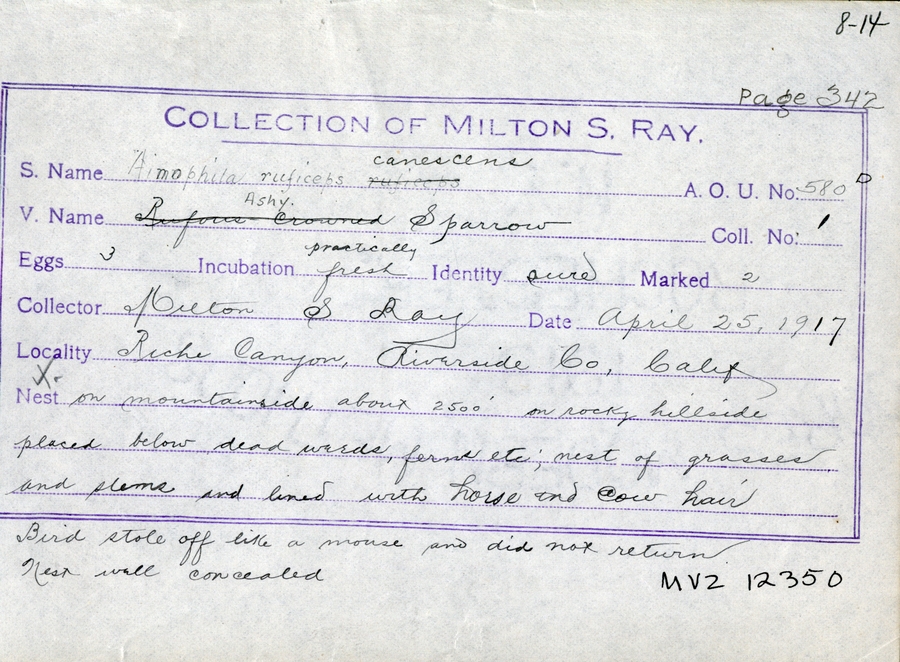 8-14
Page 342
COLLECTION OF MILTON S. RAY.
canescens
S. Name Aimophila ruficeps ruficeps A. O. U. No. 580 b
Ashy.
V. Name Rufous-Crowned Sparrow Coll. No. 1
practically
Eggs 3 Incubation fresh Identity sure Marked 2
Collector Milton S Ray Date April 25, 1917
Locality Riche Canyon, Riverside Co, Calif
X.
Nest on mountainside about 2500' on rocky hillside
placed below dead weeds, ferns etc; nest of grasses
and stems and lined with horse and cow hair
Bird stole off like a mouse and did not return
Nest well concealed
MVZ 12350